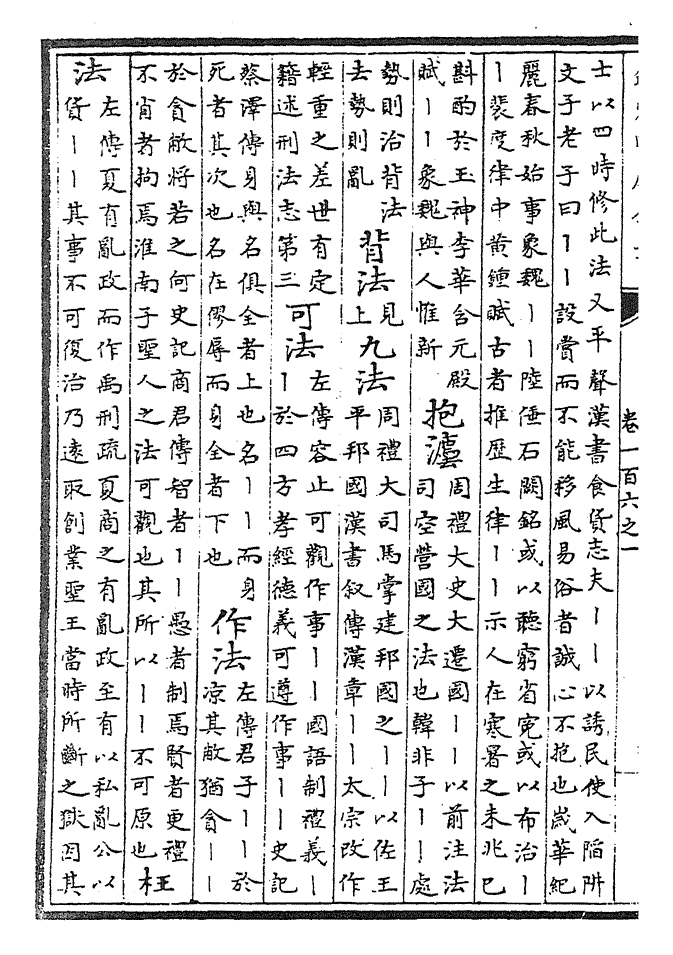 卷一百六之一
士以四時修此法又平聲漢書食貨志夫丨丨以誘民使入陷阱
文子老子曰丨丨設賞而不能移風易俗者誠心不抱也歲華紀
麗春秋始事象魏丨丨陸倕石闕銘或以聽窮省寃或以布治丨
丨裴度律中黄鍾賦古者推歷生律丨丨示人在寒暑之未兆已
斟酌於玉神李華含元殿
賦丨丨象魏與人惟新
抱灋
周禮大史大遷國丨丨以前注法
司空營國之法也韓非子丨丨處
勢則治背法
去勢則亂
背法
見
上
九法
周禮大司馬掌建邦國之丨丨以佐王
平邦國漢書叙傳漢章丨丨太宗改作
輕重之差世有定
籍述刑法志第三
可法
左傳容止可觀作事丨丨國語制禮義丨
丨於四方孝經德義可遵作事丨丨史記
蔡澤傳身與名俱全者上也名丨丨而身
死者其次也名在僇辱而身全者下也
作法
左傳君子丨丨於
凉其敝猶貪丨丨
於貪敝將若之何史記商君傳智者丨丨愚者制焉賢者更禮
不肖者拘焉淮南子聖人之法可觀也其所以丨丨不可原也
枉
法
左傳夏有亂政而作禹刑疏夏商之有亂政至有以私亂公以
貨丨丨其事不可復治乃遠取創業聖王當時所斷之獄因其